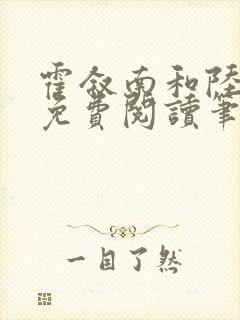 霍叙南和陸
免費閱讀筆
一目了然